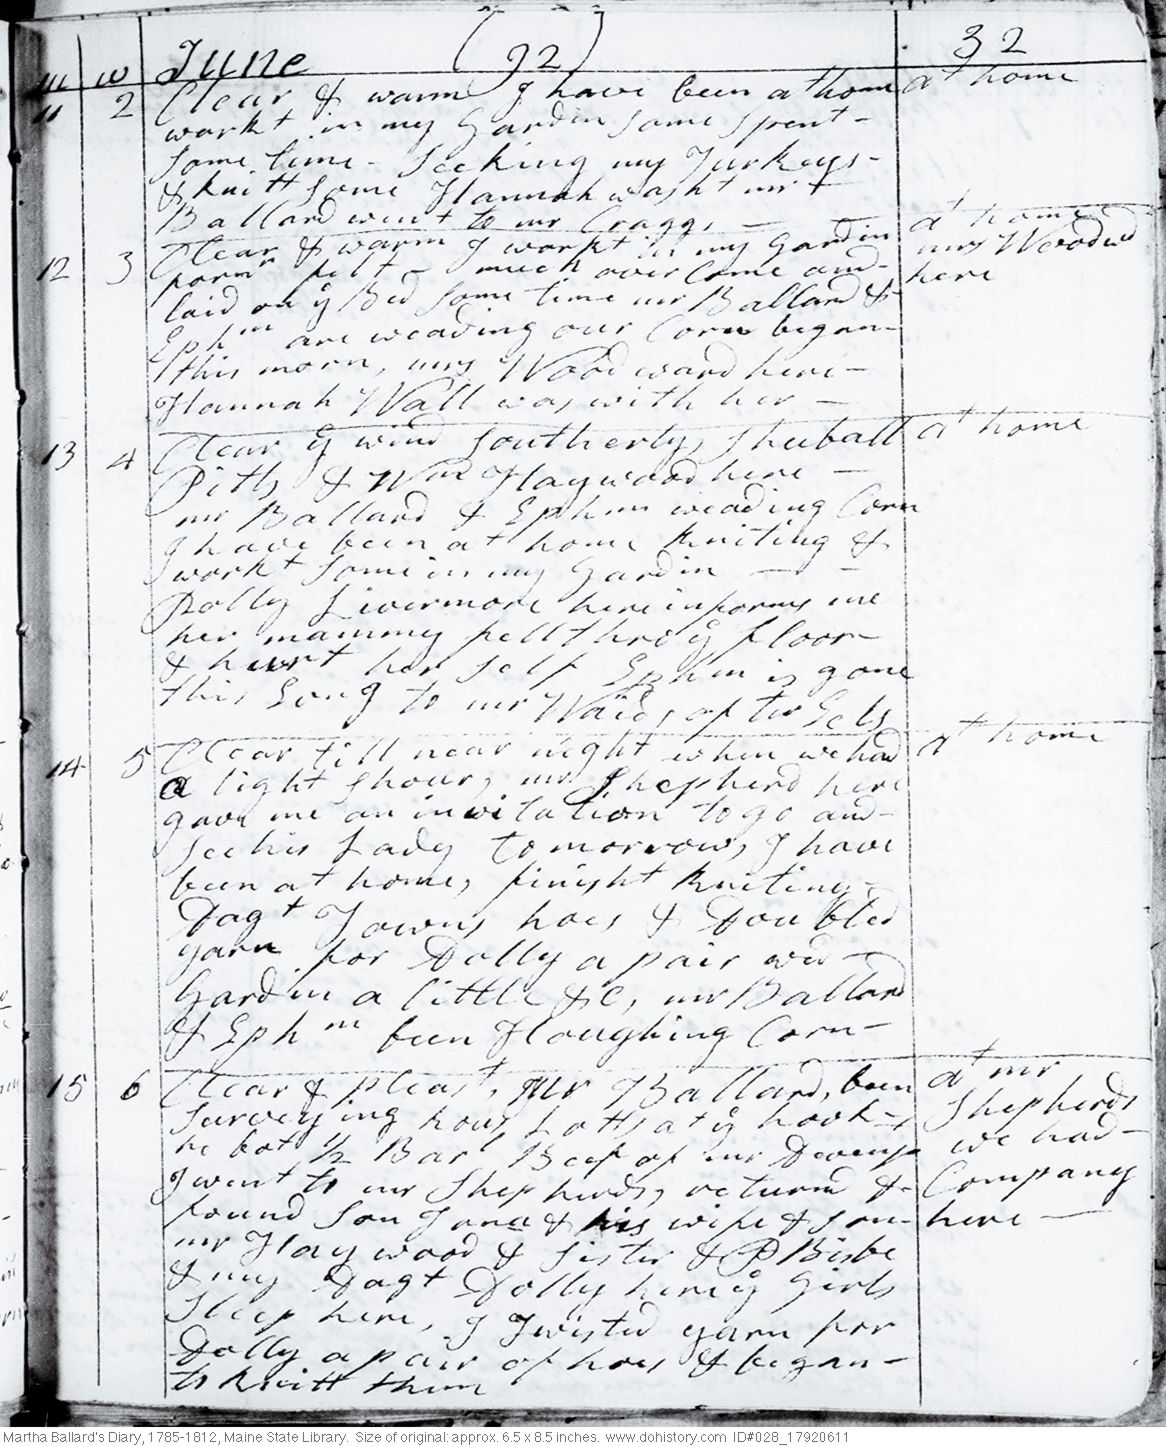 m w June (92) 32
11 2 Clear & warm I have been at home at home
workt in my Gardin some spent
some time seeking my Turkeys
& knitt some Hannah washt mr
Ballard went to mr Craggs
at home
12 3 Clear & warm I workt in my Gardin mrs Woodwd
much over Come and here
laid on ye Bed some time mr Ballard &
Ephm are weading our Corn began
this morn, mrs Woodward here
Hannah Wall was with her
13 4 Clear ye wind Southerly, Shuball at home
Pitts & Wm Haywood here
mr Ballard & Ephm weading Corn
I have been at home kniting &
workt some in my Gardin
Polly Livermore here informs me
her mammy fell thro ye floor
& hurt her self Ephm is gone
this Eong to mr Waids after
14 5 Clear till near night when we had at home
a light shour, mr Shepherd here
gave me an invitation to go and
see his Lady tomorrow, I have
been at home, finisht kniting
Dagt Towns hoes & Doubled
yarn for Dolly a pair wed
Gardin a little &c, mr Ballard
& Ephm been Ploughing Corn
15 6 Clear & pleast, mr Ballard, been at mr
surveying hous Lotts at ye hook Shepherds
he bot 1/2 Barl Beef of mr we had
I went to mr Shepherds, returnd & Company
found son Jona & his wife & son here
mr Haywood & sister & P Bisbe
& my Dagt Dolly here ye Girls
sleep here, I Twisted yarn for
Dolly a pair of hoes & began
to knitt them
Martha Ballard's Diary, 1785-1812, Maine State Library. Size of original: approx. 6.5 x 8.5 inches. www.dohistory.com ID#028_17920611